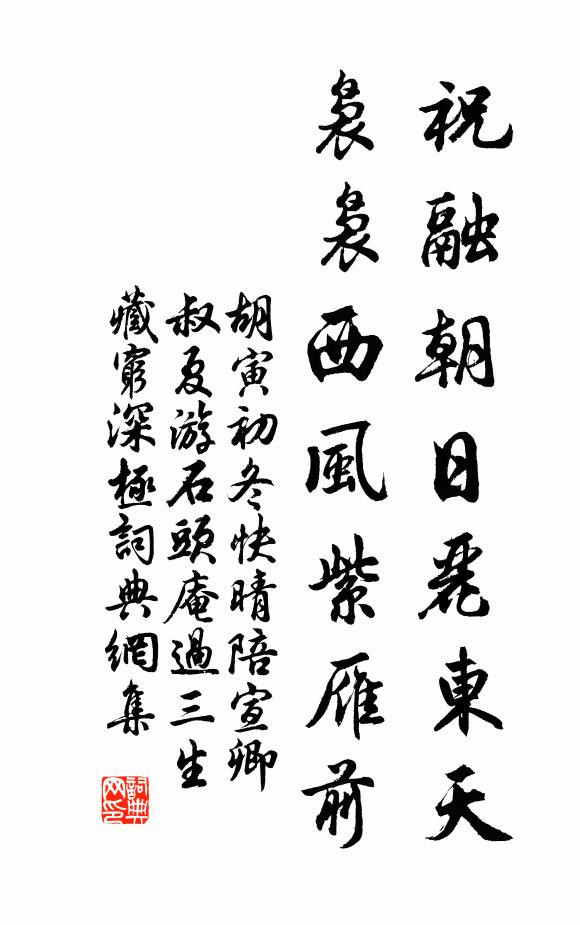 祝融朝日麗東天
裊裊西風紫雁前
胡寅初冬快晴陪宣卿
叔夏游石頭庵過三生
藏窮深極詞典網集
詞典
网印